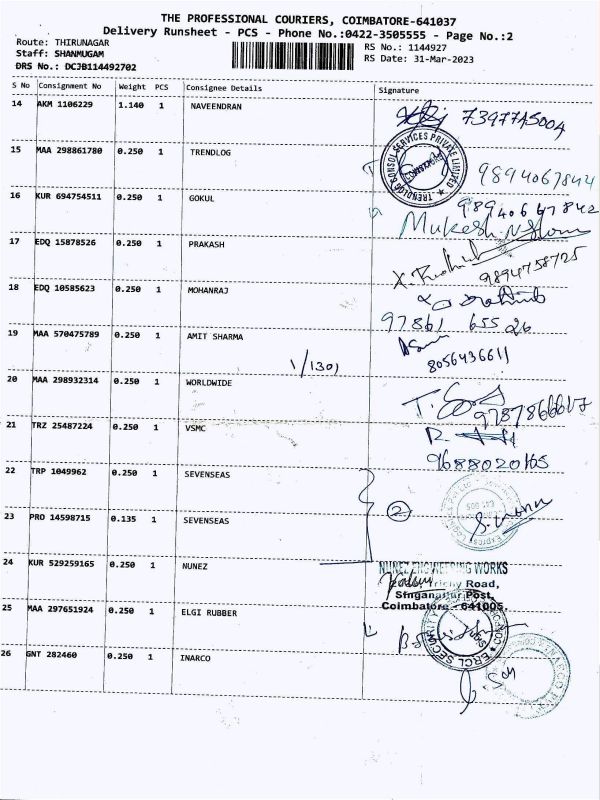 THE PROFESSIONAL COURIERS, COIMBATORE-641037
Delivery Runsheet - PCS - Phone No.:0422-3505555 - Page No.:2
Route: THIRUNAGAR
Staff: SHANMUGAM
DRS No.: DCJB114492702
RS No.: 1144927
RS Date: 31-Mar-2023
S No Consignment No Weight PCS Consignee Details Signature
14 AKM 1106229 1.140 1 NAVEENDRAN
7397745004
15 MAA 298861780 0.250 1 TRENDLOG
TRENDLOG CONSOL SERVICES PRIVATE LIMITED
9894067844
16 KUR 694754511 0.250 1 GOKUL
9894067842
Mukesh
17 EDQ 15878526 0.250 1 PRAKASH
9894758725
18 EDQ 10585623 0.250 1 MOHANRAJ
97861 655 26
19 MAA 570475789 0.250 1 AMIT SHARMA
1/1301
8056436611
20 MAA 298932314 0.250 1 WORLDWIDE
21 TRZ 25487224 0.250 1 VSMC
9688020165
22 TRP 1049962 0.250 1 SEVENSEAS
2
23 PRO 14598715 0.135 1 SEVENSEAS
24 KUR 529259165 0.250 1 NUNEZ
NUNEZ ENGINEERING WORKS
Trichy Road,
Singanallur Post,
Coimbatore - 641005.
25 MAA 297651924 0.250 1 ELGI RUBBER
ERCL SECURITY
26 GNT 282460 0.250 1 INARCO
INARCO